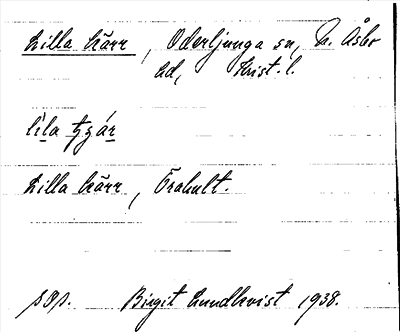 Lilla Kärr, Oderljunga sn, N. Åsbo
hd, Krist. l.
líla tçǽr
Lilla Kärr, Örahult.
pgp. Birgit Lundkvist 1938.